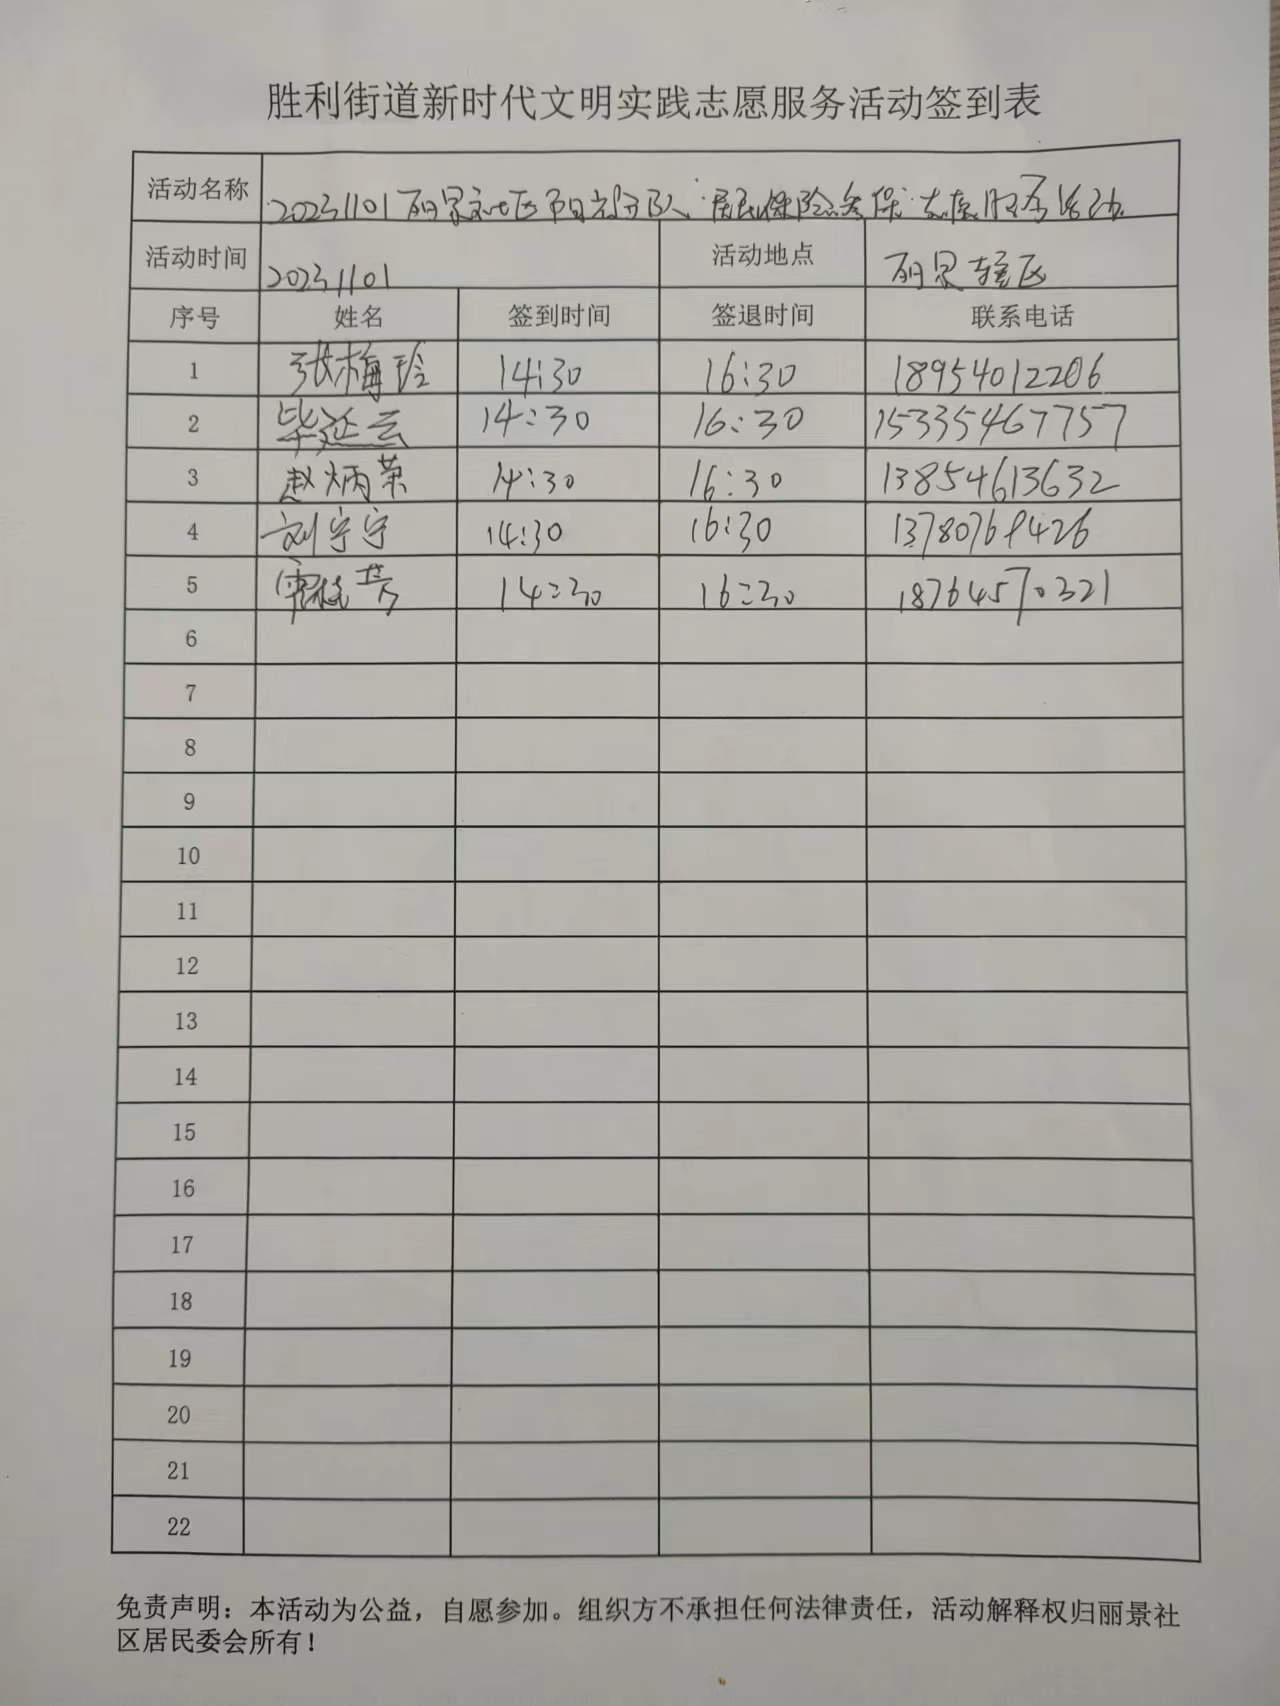 胜利街道新时代文明实践志愿服务活动签到表
活动名称 20231101丽景社区 居民保险参保 志愿服务活动
活动时间 20231101 活动地点 丽景辖区
序号 姓名 签到时间 签退时间 联系电话
1 张梅玲 14:30 16:30 18954012206
2 毕延云 14:30 16:30 15335467757
3 赵炳荣 14:30 16:30 13854613632
4 刘宁宁 14:30 16:30 13780769426
5 14:30 16:30 18764570321
6
7
8
9
10
11
12
13
14
15
16
17
18
19
20
21
22
免责声明：本活动为公益，自愿参加。组织方不承担任何法律责任，活动解释权归丽景社
区居民委会所有！